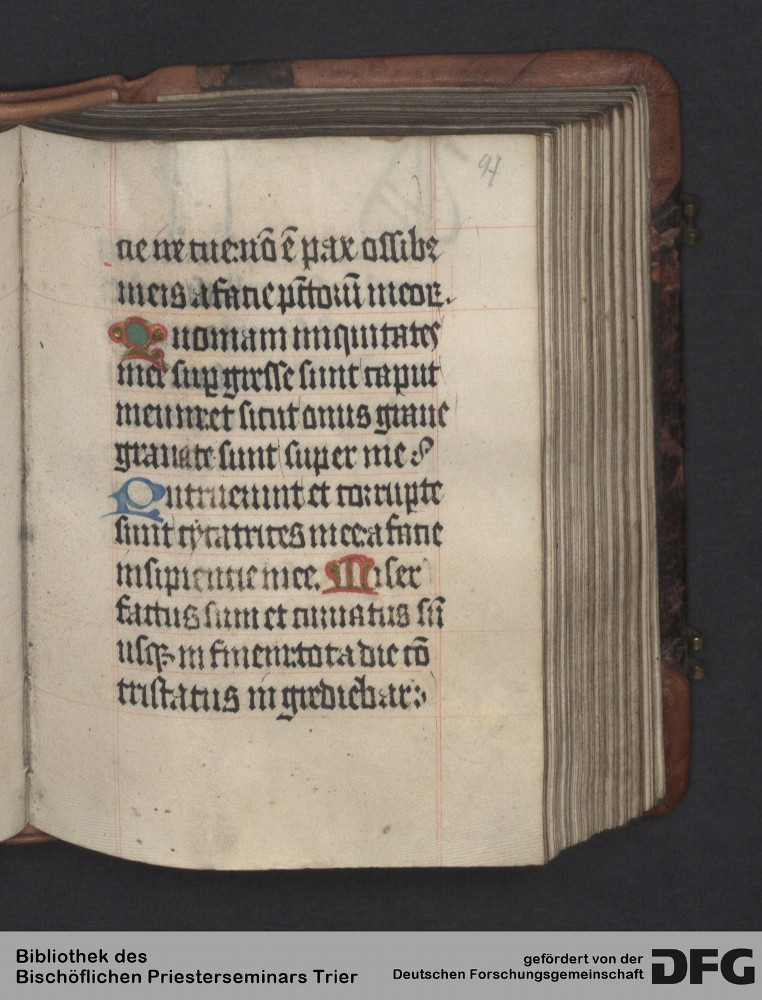 94
cie ire tue: nō ē pax ossibꝫ
meis a facie pctoꝝ meoꝝ.
Quoniam iniquitates
mee suꝑgresse sunt caput
meum: et sicut onus graue
grauate sunt super me
Putruerunt et corrupte
sunt cycatrices mee: a facie
insipientie mee. Miser
factus sum et curuatus sū
usqꝫ in finem: tota die cō
tristatus ingrediebar:
Bibliothek des
Bischöflichen Priesterseminars Trier
gefördert von der
Deutschen Forschungsgemeinschaft
DFG